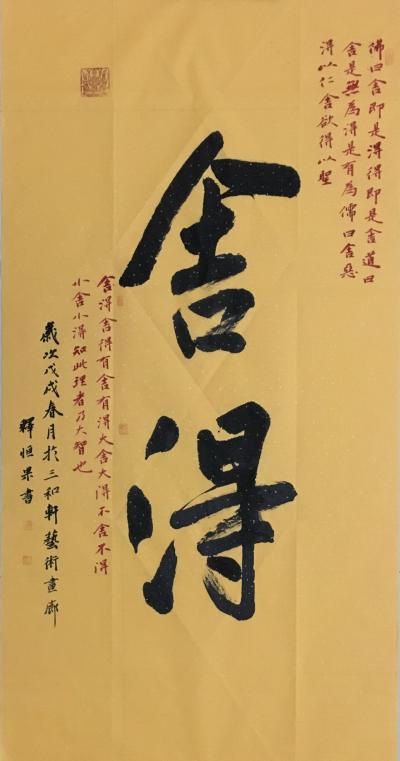 佛曰舍即是得得即是舍道曰
舍是無為得是有為儒曰舍惡
得以仁舍欲得以聖
舍得
舍得舍得有舍有得大舍大得不舍不得
小舍小得知此理者乃大智也
歲次戊戌春月於三和軒藝術畫廊
釋恒果書